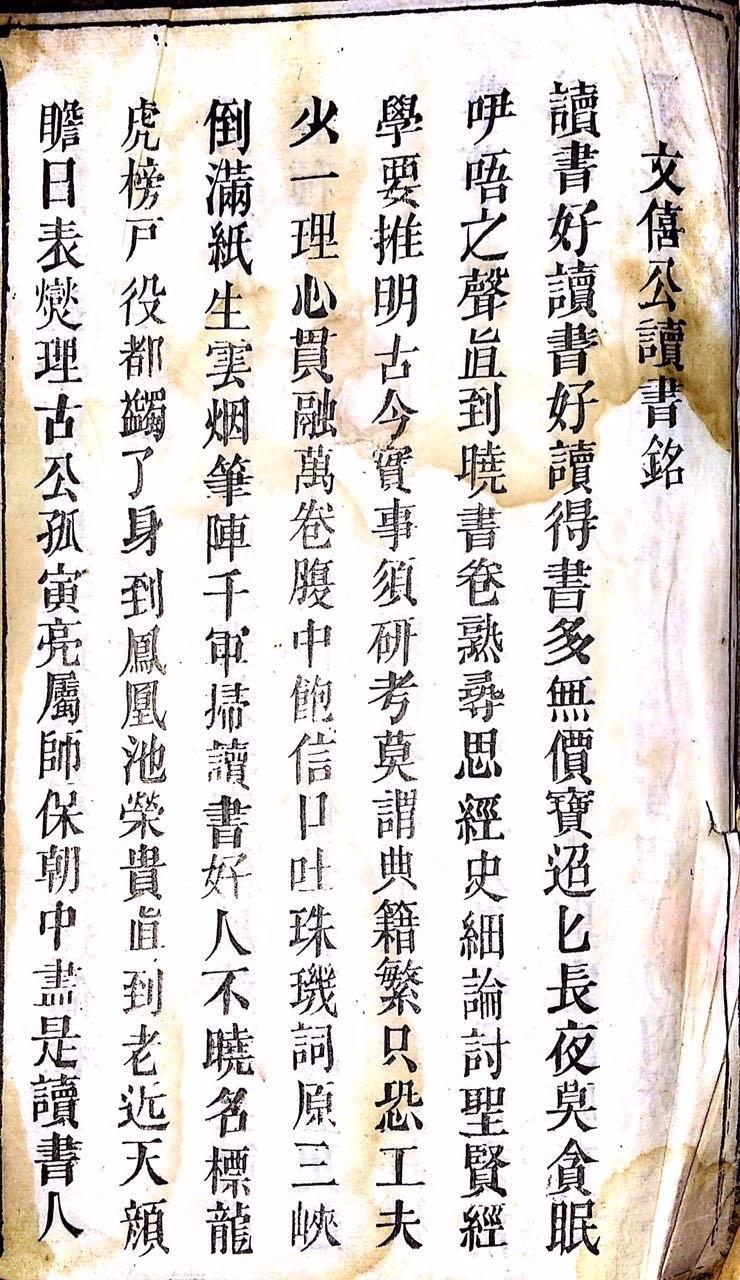 文僖公讀書銘
讀書好讀書好讀得書多無價寶迢匕長夜莫貪眠
咿唔之聲直到曉書卷熟尋思經史細論討聖賢經
學要推明古今實事須研考莫謂典籍繁只恐工夫
少一理心貫融萬卷腹中飽信口吐珠璣詞原三峽
倒滿紙生雲烟筆陣千軍掃讀書好人不曉名標龍
虎榜戸役都蠲了身到鳳凰池榮貴直到老近天顔
瞻日表爕理古公孤寅亮屬師保朝中盡是讀書人